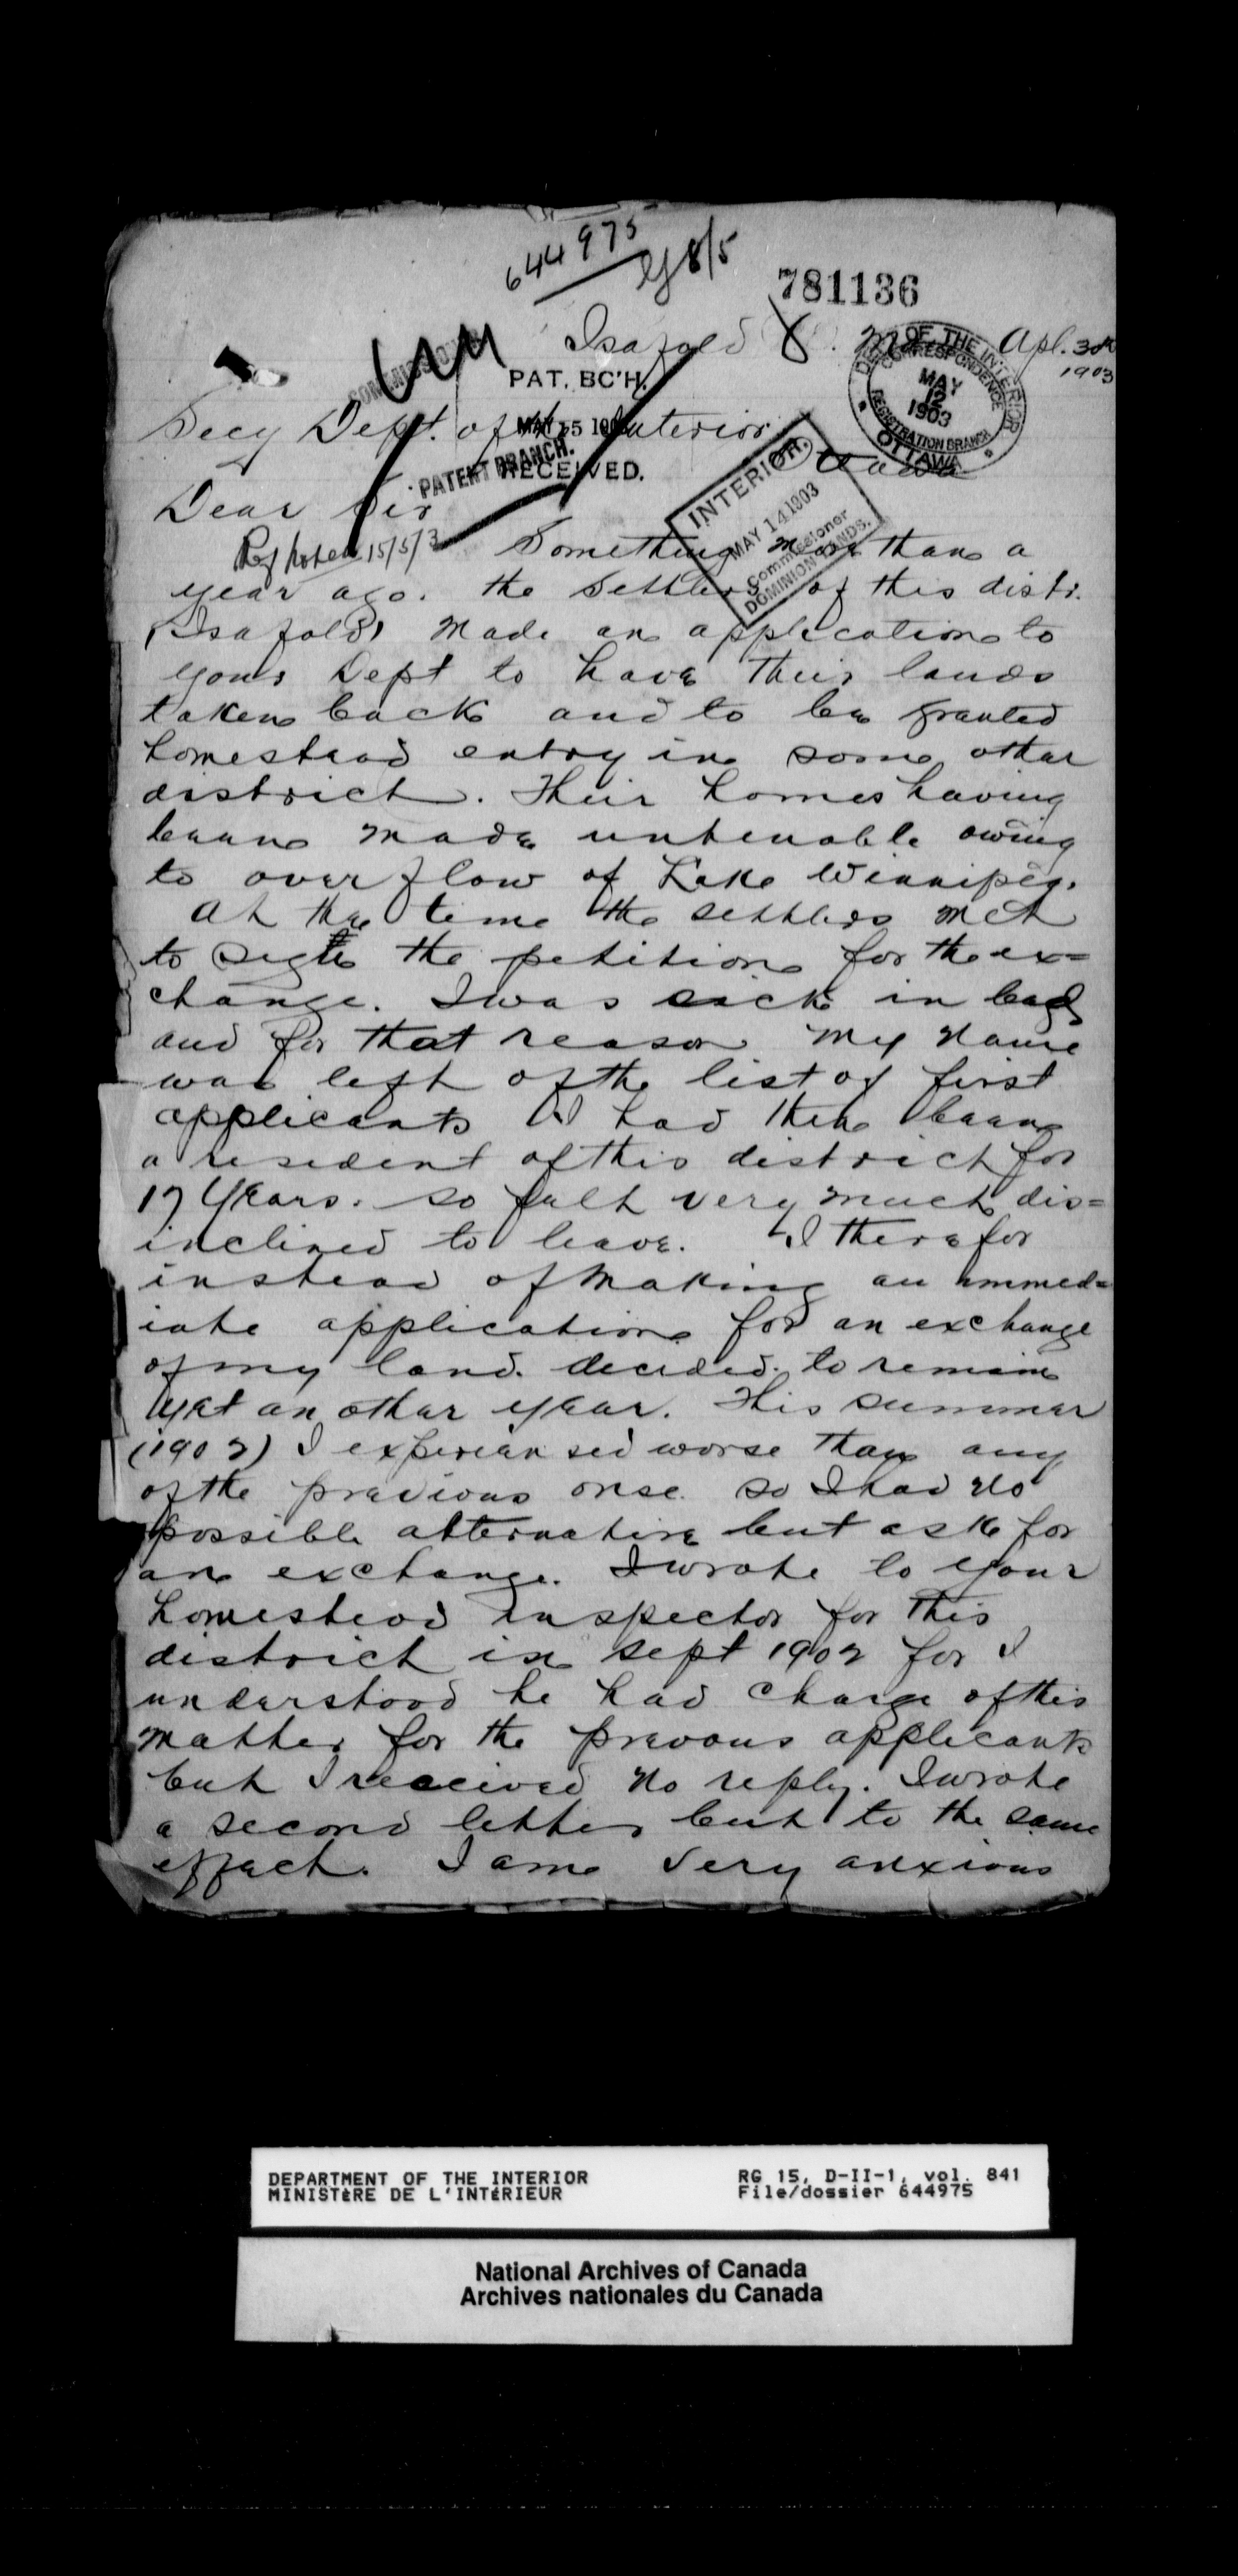 644975
8/5
781136
Isafold P.O. Man. Apl. 30th
1903
COMMISSIONER
PAT. BC'H.
MAY 15 1903
RECEIVED.
PATENT BRANCH.
DEPT. OF THE INTERIOR
CORRESPONDENCE
MAY
12
1903
REGISTRATION BRANCH
OTTAWA
Secy Dept. of the Interior
Ottawa
INTERIOR.
MAY 14 1903
Commissioner
DOMINION LANDS.
Dear Sir
15/5/3
Something more than a
year ago. the settlers of this distr.
(Isafold) made an application to
your Dept to have their lands
taken back and to be granted
homestead entry in some other
district. Their homes having
been made untenable owing
to overflow of Lake Winnipeg.
At the time the settlers met
to sign the petition for the ex=
change. I was sick in bed
and for that reason my name
was left of the list of first
applicants I had then been
a resident of this district for
17 years. so felt very much dis=
inclined to leave. I therefor
instead of making an immed=
iate application for an exchange
of my land. decided to remain
yet an other year. This summer
(1902) I experiensed worse than any
of the previous onse. so I had no
possible alternative but ask for
an exchange. I wrote to your
homestead inspector for this
district in sept 1902 for I
understood he had charge of this
matter for the prevous applicants
but I received no reply. I wrote
a second letter but to the same
effect. I am very anxious
DEPARTMENT OF THE INTERIOR
MINISTÈRE DE L'INTÉRIEUR
RG 15, D-II-1, vol. 841
File/dossier 644975
National Archives of Canada
Archives nationales du Canada